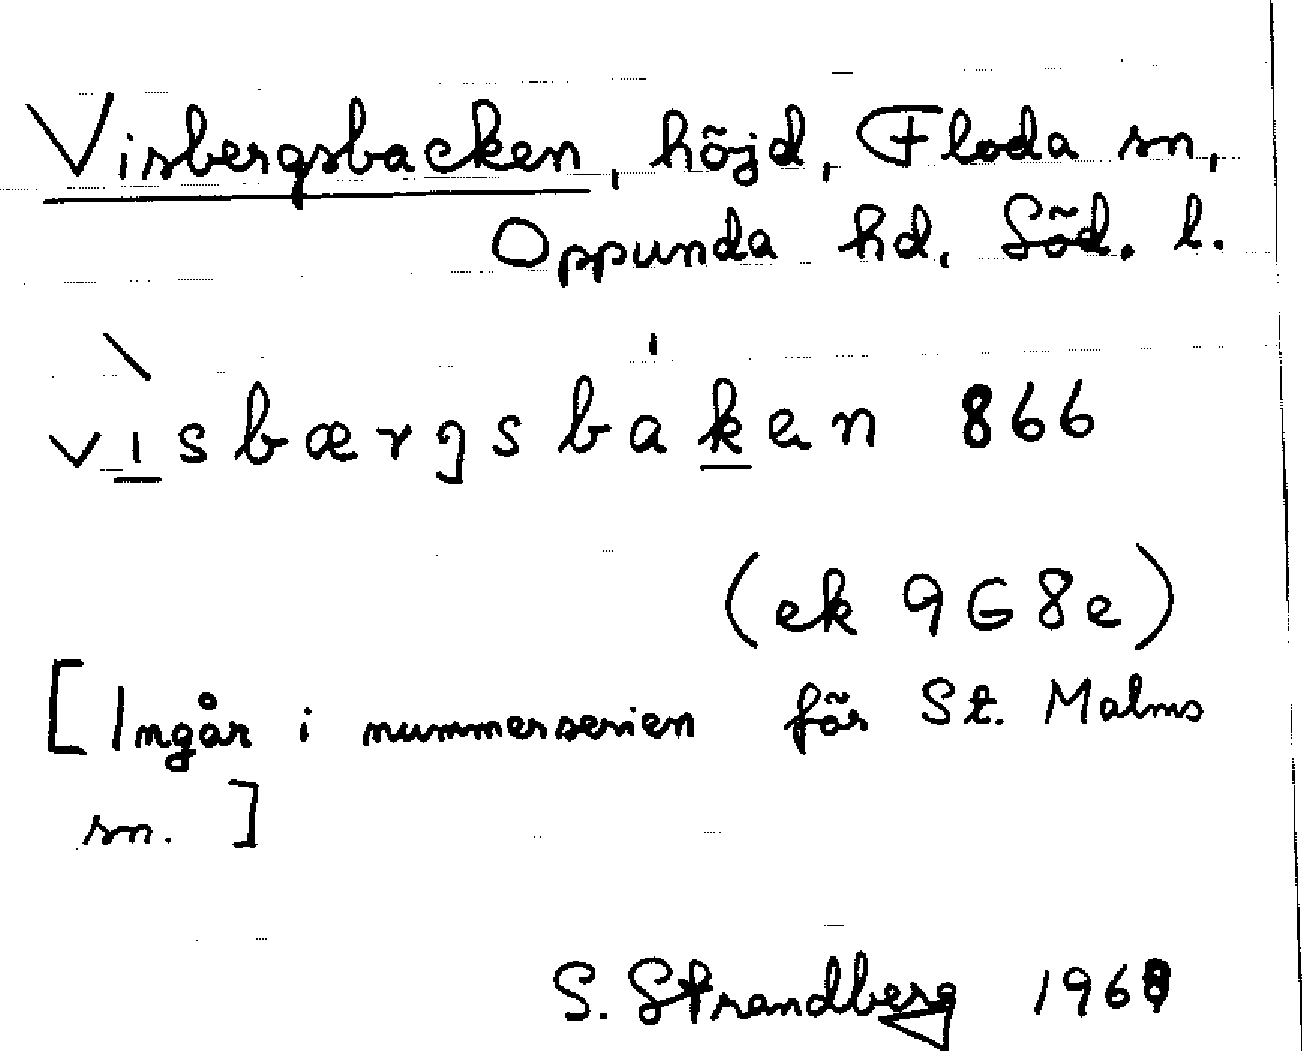 Visbergsbacken, höjd, Floda sn,
Oppunda hd, Söd. l.
v̀i̲sbærgsba'k̲en 866
(ek 9G8e)
[Ingår i nummerserien för St. Malms
sn.]
S. Strandberg